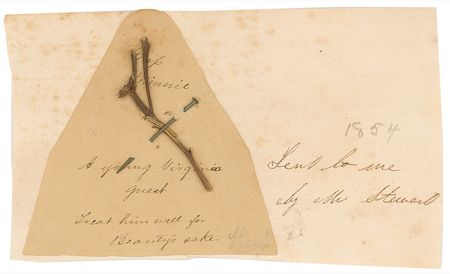 Miss
Minnie
A young Virginia
guest
Treat him well for
Beauty's sake
1854
Sent to me
by Mr Stewart